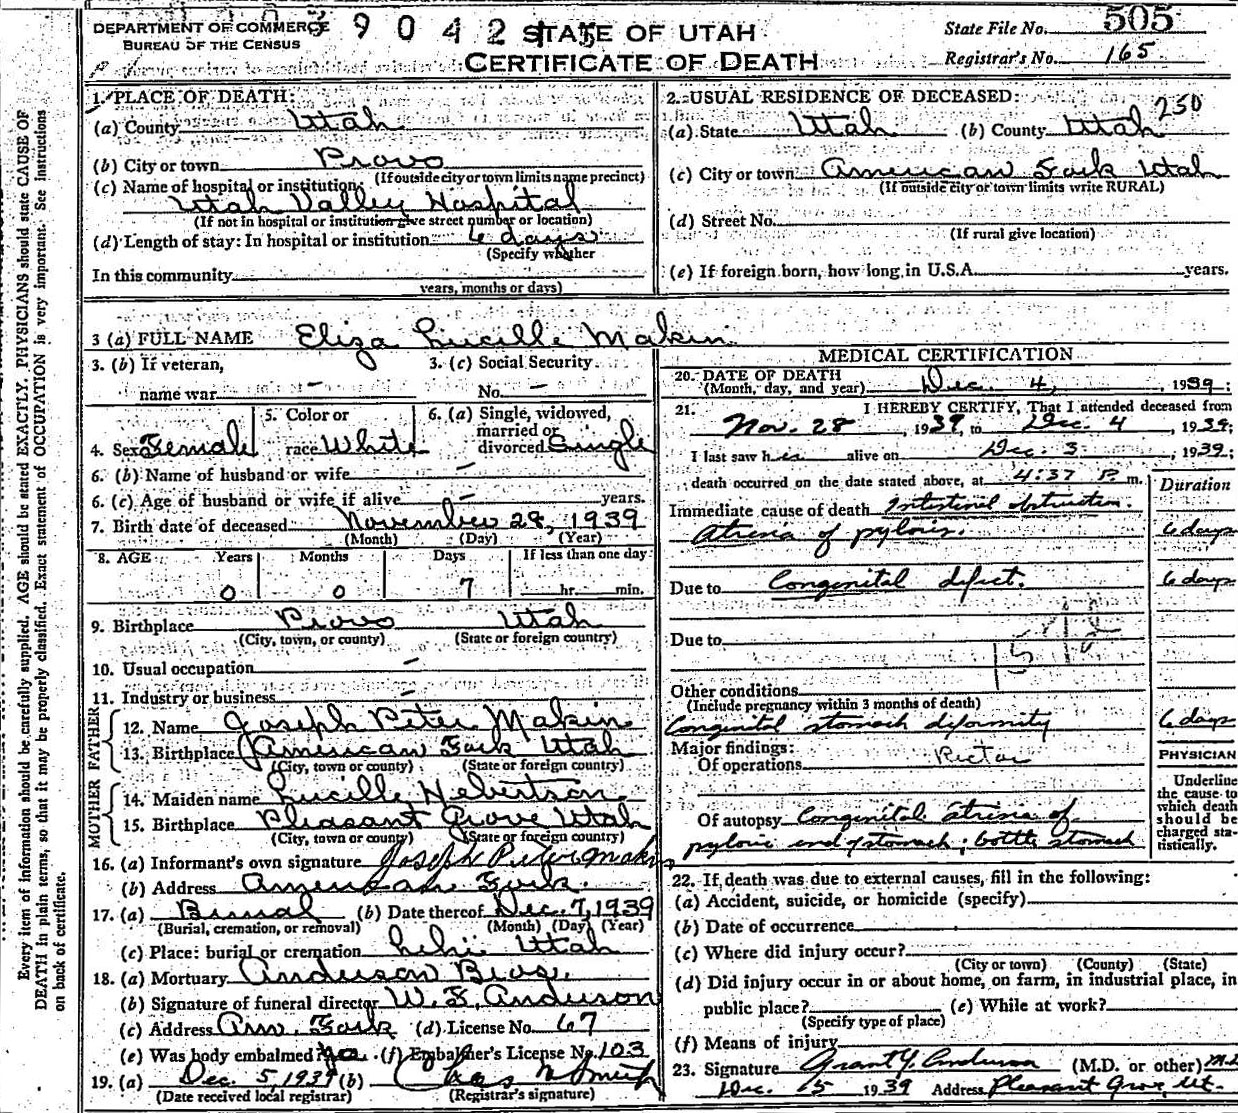 DEPARTMENT OF COMMERCE
BUREAU OF THE CENSUS
9 0 4 2
STATE OF UTAH
CERTIFICATE OF DEATH
State File No. 505
Registrar's No. 165
Every item of information should be carefully supplied. AGE should be stated EXACTLY. PHYSICIANS should state CAUSE OF
DEATH in plain terms, so that it may be properly classified. Exact statement of OCCUPATION is very important. See Instructions
on back of certificate.
1. PLACE OF DEATH:
(a) County Utah
(b) City or town Provo
(If outside city or town limits name precinct)
(c) Name of hospital or institution:
Utah Valley Hospital
(If not in hospital or institution give street number or location)
(d) Length of stay: In hospital or institution 6 days
(Specify whether
In this community
years, months or days)
2. USUAL RESIDENCE OF DECEASED:
250
(a) State Utah (b) County Utah
(c) City or town American Fork Utah
(If outside city or town limits write RURAL)
(d) Street No.
(If rural give location)
(e) If foreign born, how long in U.S.A. years.
3 (a) FULL NAME Eliza Lucille Makin
3. (b) If veteran, 3. (c) Social Security
name war – No. –
4. Sex Female
5. Color or
race White
6. (a) Single, widowed,
married or
divorced Single
6. (b) Name of husband or wife –
6. (c) Age of husband or wife if alive – years.
7. Birth date of deceased November 28, 1939
(Month) (Day) (Year)
8. AGE Years Months Days If less than one day
0 0 7 hr. min.
9. Birthplace Provo Utah
(City, town, or county) (State or foreign country)
10. Usual occupation –
11. Industry or business –
FATHER
12. Name Joseph Peter Makin
13. Birthplace American Fork Utah
(City, town or county) (State or foreign country)
MOTHER
14. Maiden name Lucille Hebertson
15. Birthplace Pleasant Grove Utah
(City, town or county) (State or foreign country)
16. (a) Informant's own signature Joseph Peter Makin
(b) Address American Fork.
17. (a) Burial (b) Date thereof Dec. 7, 1939
(Burial, cremation, or removal) (Month) (Day) (Year)
(c) Place: burial or cremation Lehi Utah
18. (a) Mortuary Anderson Bros.
(b) Signature of funeral director W. F. Anderson
(c) Address Am. Fork (d) License No. 67
(e) Was body embalmed? (f) Embalmer's License No. 103
19. (a) Dec. 5, 1939 (b) Chas N Smith
(Date received local registrar) (Registrar's signature)
MEDICAL CERTIFICATION
20. DATE OF DEATH
(Month, day, and year) Dec. 4, , 1939;
21. I HEREBY CERTIFY, That I attended deceased from
Nov. 28 , 1939, to Dec. 4 , 1939;
I last saw her alive on Dec. 3 , 1939;
death occurred on the date stated above, at 4:37 P. m.
Duration
Immediate cause of death Intestinal obstruction.
Atresia of pyloris. 6 days
Due to Congenital defect. 6 days
Due to
Other conditions
(Include pregnancy within 3 months of death)
Congenital stomach deformity 6 days
Major findings:
Of operations
PHYSICIAN
Underline
the cause to
which death
should be
charged sta-
tistically.
Of autopsy Congenital atresia of
pyloric end of stomach; bottle stomach
22. If death was due to external causes, fill in the following:
(a) Accident, suicide, or homicide (specify)
(b) Date of occurrence
(c) Where did injury occur?
(City or town) (County) (State)
(d) Did injury occur in or about home, on farm, in industrial place, in
public place? (e) While at work?
(Specify type of place)
(f) Means of injury
23. Signature Grant Y. Anderson (M.D. or other) M.D.
Dec. 5 1939 Address Pleasant Grove, Ut.